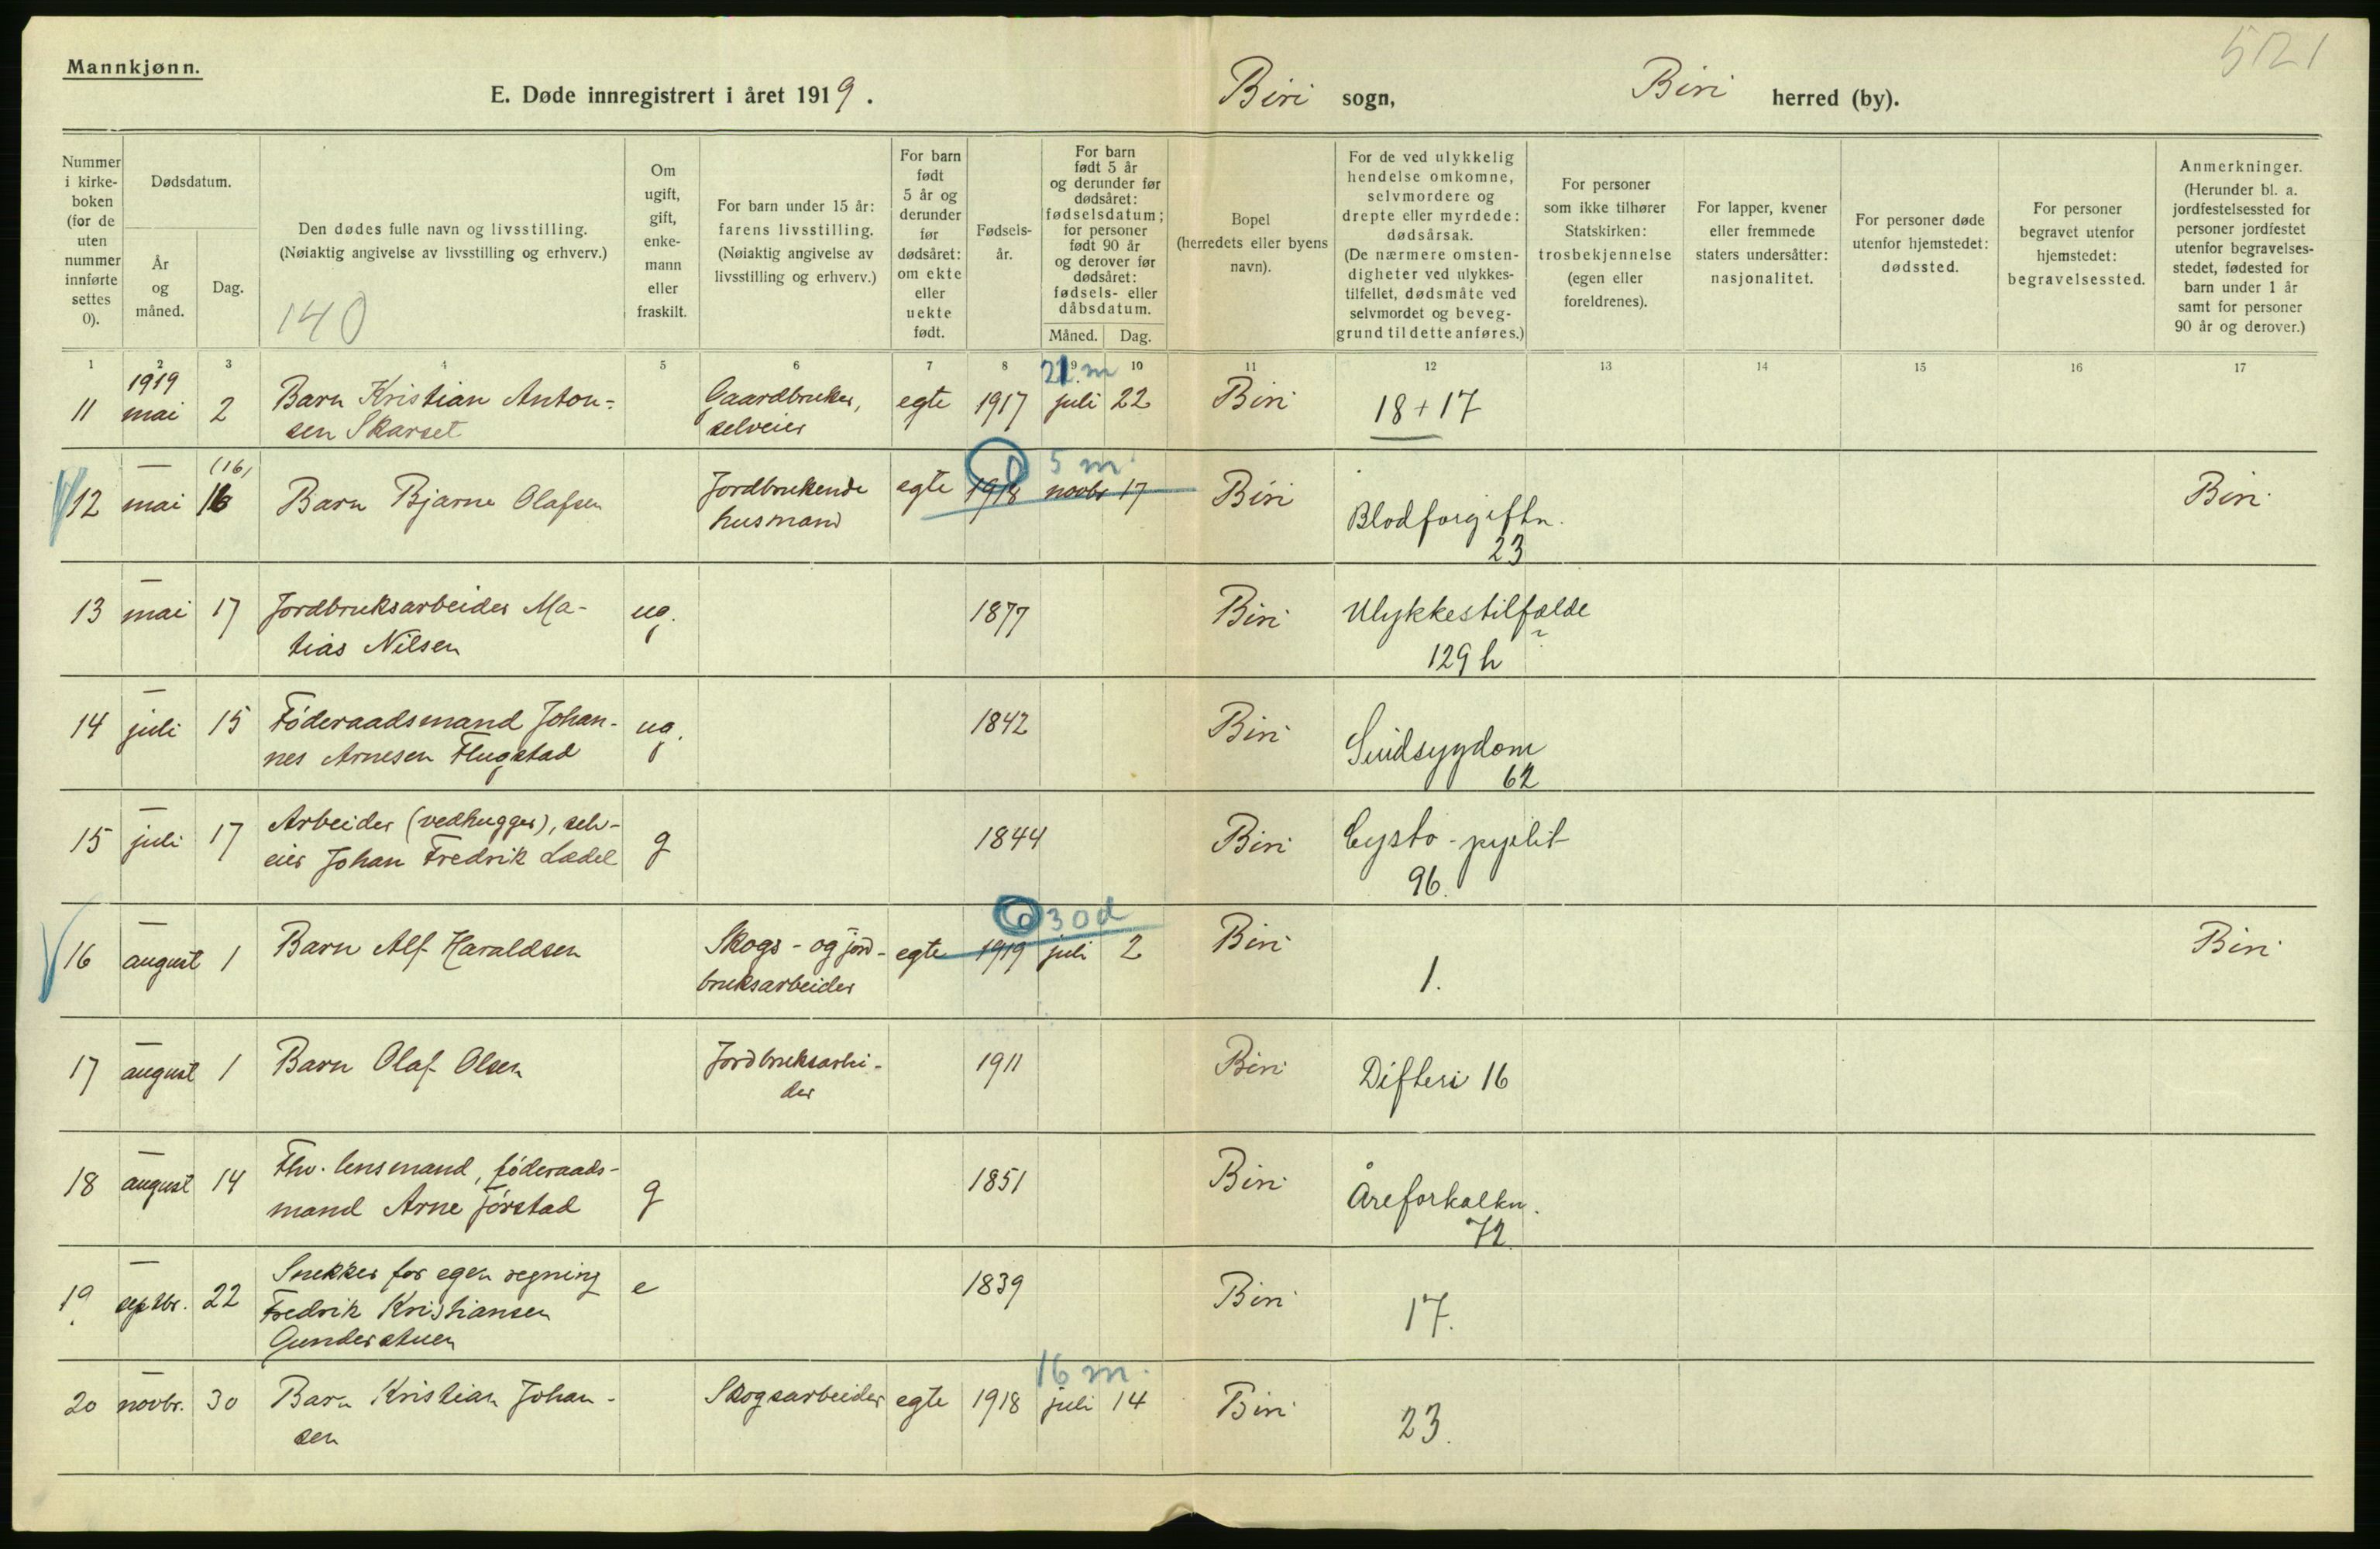 521
Mannkjønn.
E. Døde innregistrert i året 1919.
Biri sogn, Biri herred (by).
Nummer i kirke-boken (for de uten nummer innførte settes 0).
Dødsdatum.
År og måned.
Dag.
Den dødes fulle navn og livsstilling.
(Nøiaktig angivelse av livsstilling og erhverv.)
140
Om ugift, gift, enke-mann eller fraskilt.
For barn under 15 år: farens livsstilling.
(Nøiaktig angivelse av livsstilling og erhverv.)
For barn født 5 år og derunder før dødsåret: om ekte eller uekte født.
Fødsels-år.
For barn født 5 år og derunder før dødsåret: fødselsdatum; for personer født 90 år og derover før dødsåret: fødsels- eller dåbsdatum.
Måned. Dag.
Bopel (herredets eller byens navn).
For de ved ulykkelig hendelse omkomne, selvmordere og drepte eller myrdede: dødsårsak.
(De nærmere omsten-digheter ved ulykkes-tilfellet, dødsmåte ved selvmordet og beveg-grund til dette anføres.)
For personer som ikke tilhører Statskirken: trosbekjennelse (egen eller foreldrenes).
For lapper, kvener eller fremmede staters undersåtter: nasjonalitet.
For personer døde utenfor hjemstedet: dødssted.
For personer begravet utenfor hjemstedet: begravelsessted.
Anmerkninger.
(Herunder bl. a. jordfestelsessted for personer jordfestet utenfor begravelses-stedet, fødested for barn under 1 år samt for personer 90 år og derover.)
1 2 3 4 5 6 7 8 9 10 11 12 13 14 15 16 17
1919 21 m
11 mai 2 Barn Kristian Anton- Gaardbruker, egte 1917 juli 22 Biri 18 + 17
sen Skarset selveier
— (16) 0 5 m.
12 mai 16 Barn Bjarne Olafsen Jordbrukende egte 1918 novbr 17 Biri Blodforgiftn. Biri
husmand 23
—
13 mai 17 Jordbruksarbeider Ma- ug. 1877 Biri Ulykkestilfælde
tias Nilsen 129 h
—
14 juli 15 Föderaadsmand Johan- ug. 1842 Biri Sindsygdom
nes Arnesen Flugstad 62
—
15 juli 17 Arbeider (vedhugger), selv- g 1844 Biri Cysto-pyelit
eier Johan Fredrik Lædel 96.
— 0 30 d
16 august 1 Barn Alf Haraldsen Skogs- og jord- egte 1919 juli 2 Biri 1. Biri
bruksarbeider
—
17 august 1 Barn Olaf Olsen Jordbruksarbei- 1911 Biri Difteri 16
der
—
18 august 14 Fhv. lensmand, föderaads- g 1851 Biri Åreforkalkn.
mand Arne Jörstad 72
—
19 septbr. 22 Snekker for egen regning e 1839 Biri 17.
Fredrik Kristiansen
Gunderstuen
— 16 m.
20 novbr. 30 Barn Kristian Johan- Skogsarbeider egte 1918 juli 14 Biri 23.
sen